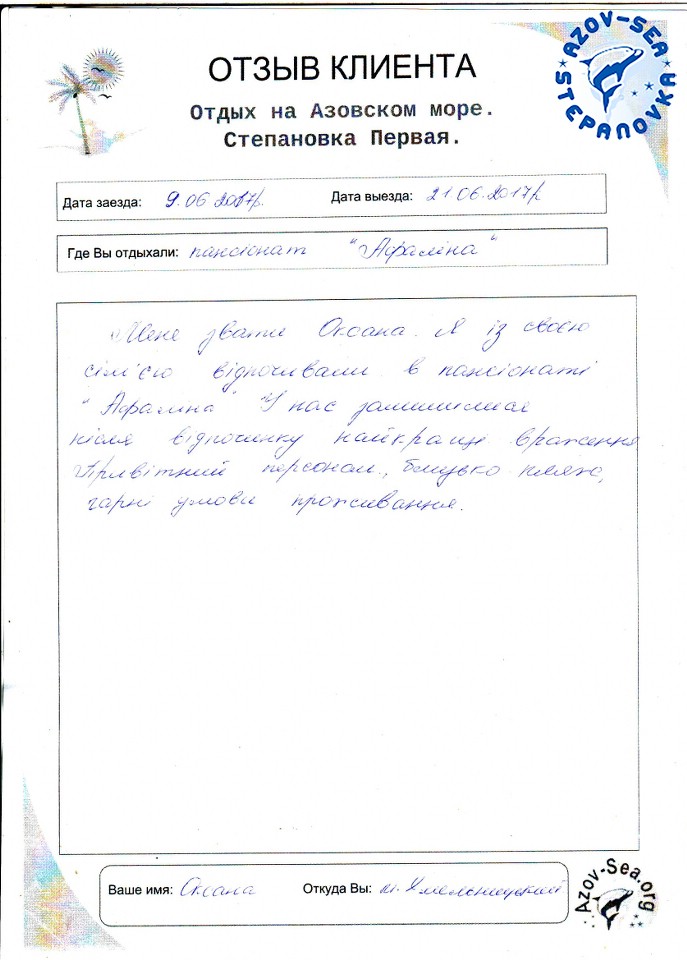 ОТЗЫВ КЛИЕНТА
Отдых на Азовском море.
Степановка Первая.
AZOV-SEA
STEPANOVKA
Дата заезда: 9.06 2017р. Дата выезда: 21 06.2017р
Где Вы отдыхали: пансіонат "Афаліна"
Мене звати Оксана. Я із своєю
сім'єю відпочивали в пансіонаті
"Афаліна" У нас залишилися
після відпочинку найкращі враження
Привітний персонал, близько пляж,
гарні умови проживання.
Ваше имя: Оксана Откуда Вы: м. Хмельницький
Azov-Sea.org